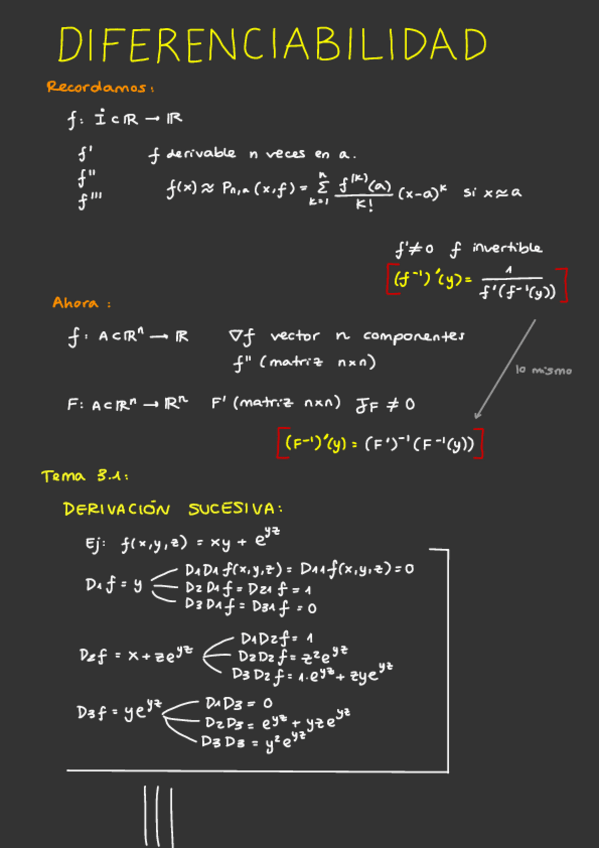 DIFERENCIABILIDAD
Recordamos:
f: I⊂ℝ → ℝ
f' f derivable n veces en a.
f''
f''' f(x) ≈ Pn,a (x,f) = Σ_{k=1}^{n} f^(k)(a)/k! (x-a)^k si x≈a
f'≠0 f invertible
[(f⁻¹)'(y) = 1/f'(f⁻¹(y))]
Ahora:
f: A⊂ℝⁿ → ℝ ∇f vector n componentes
f'' (matriz n×n)
lo mismo
F: A⊂ℝⁿ → ℝⁿ F' (matriz n×n) JF ≠ 0
[(F⁻¹)'(y) = (F')⁻¹(F⁻¹(y))]
Tema 3.1:
DERIVACIÓN SUCESIVA:
Ej: f(x,y,z) = xy + e^yz
D1D1f(x,y,z) = D11f(x,y,z) = 0
D1f = y
D2D1f = D21f = 1
D3D1f = D31f = 0
D1D2f = 1
D2f = x + ze^yz
D2D2f = z²e^yz
D3D2f = 1·e^yz + zye^yz
D3f = ye^yz
D1D3 = 0
D2D3 = e^yz + yze^yz
D3D3 = y²e^yz